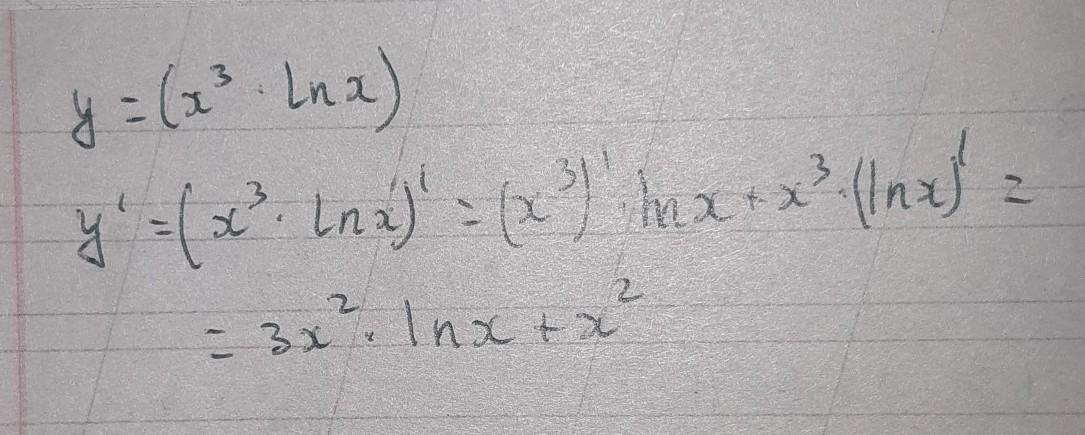 y = (x³ · ln x)
y' = (x³ · ln x)' = (x³)' · ln x + x³ · (ln x)' =
= 3x² · ln x + x²